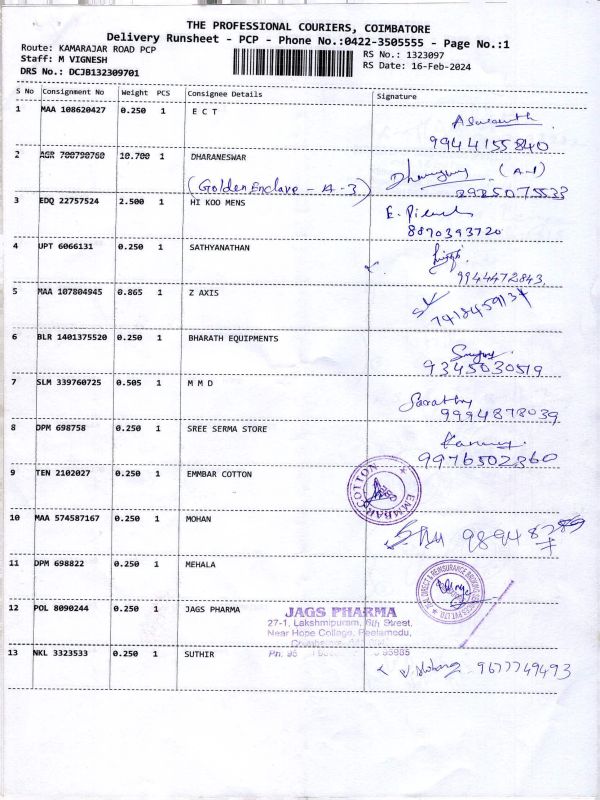 THE PROFESSIONAL COURIERS, COIMBATORE
Delivery Runsheet - PCP - Phone No.:0422-3505555 - Page No.:1
Route: KAMARAJAR ROAD PCP
RS No.: 1323097
Staff: M VIGNESH
RS Date: 16-Feb-2024
DRS No.: DCJB132309701
S No Consignment No Weight PCS Consignee Details Signature
1 MAA 108620427 0.250 1 E C T
9944155840
2 AGR 700790760 10.700 1 DHARANESWAR
(A-1)
(Golden Enclave - A-3)
3 EDQ 22757524 2.500 1 HI KOO MENS
8870393720
4 UPT 6066131 0.250 1 SATHYANATHAN
9944472843
5 MAA 107804945 0.865 1 Z AXIS
7418459137
6 BLR 1401375520 0.250 1 BHARATH EQUIPMENTS
9345030519
7 SLM 339760725 0.505 1 M M D
9994878039
8 DPM 698758 0.250 1 SREE SERMA STORE
9976502360
9 TEN 2102027 0.250 1 EMMBAR COTTON
EMMBAR COTTON
10 MAA 574587167 0.250 1 MOHAN
11 DPM 698822 0.250 1 MEHALA
DIRECT & REINSURANCE BROKING SERVICES PVT LTD
12 POL 8090244 0.250 1 JAGS PHARMA
JAGS PHARMA
27-1, Lakshmipuram, 6th Street,
Near Hope College, Peelamedu,
13 NKL 3323533 0.250 1 SUTHIR
9677749493